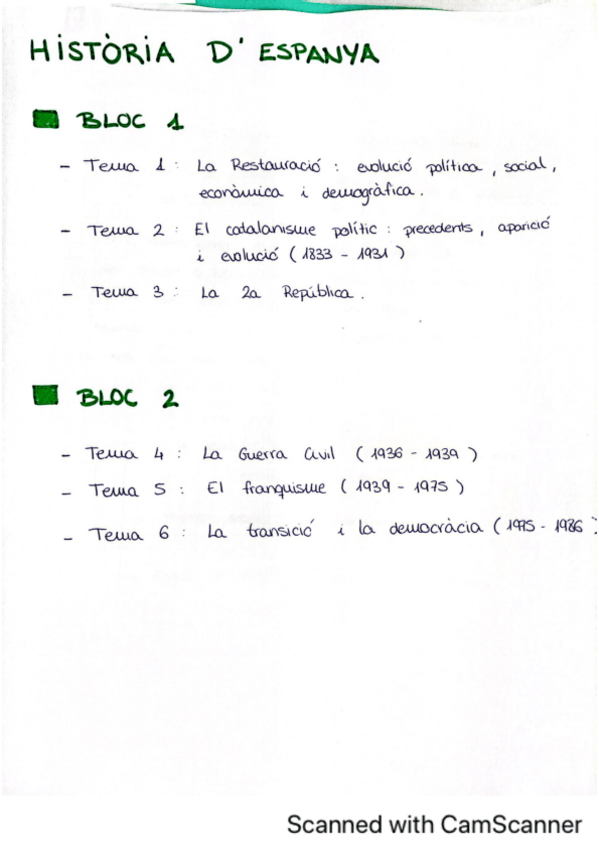 HISTÒRIA D'ESPANYA
BLOC 1
- Tema 1 : La Restauració : evolució política, social,
econòmica i demogràfica.
- Tema 2 : El catalanisme polític : precedents, aparició
i evolució (1833 - 1931)
- Tema 3 : La 2a República.
BLOC 2
- Tema 4 : La Guerra Civil (1936 - 1939)
- Tema 5 : El franquisme (1939 - 1975)
- Tema 6 : La transició i la democràcia (1975 - 1986)
Scanned with CamScanner